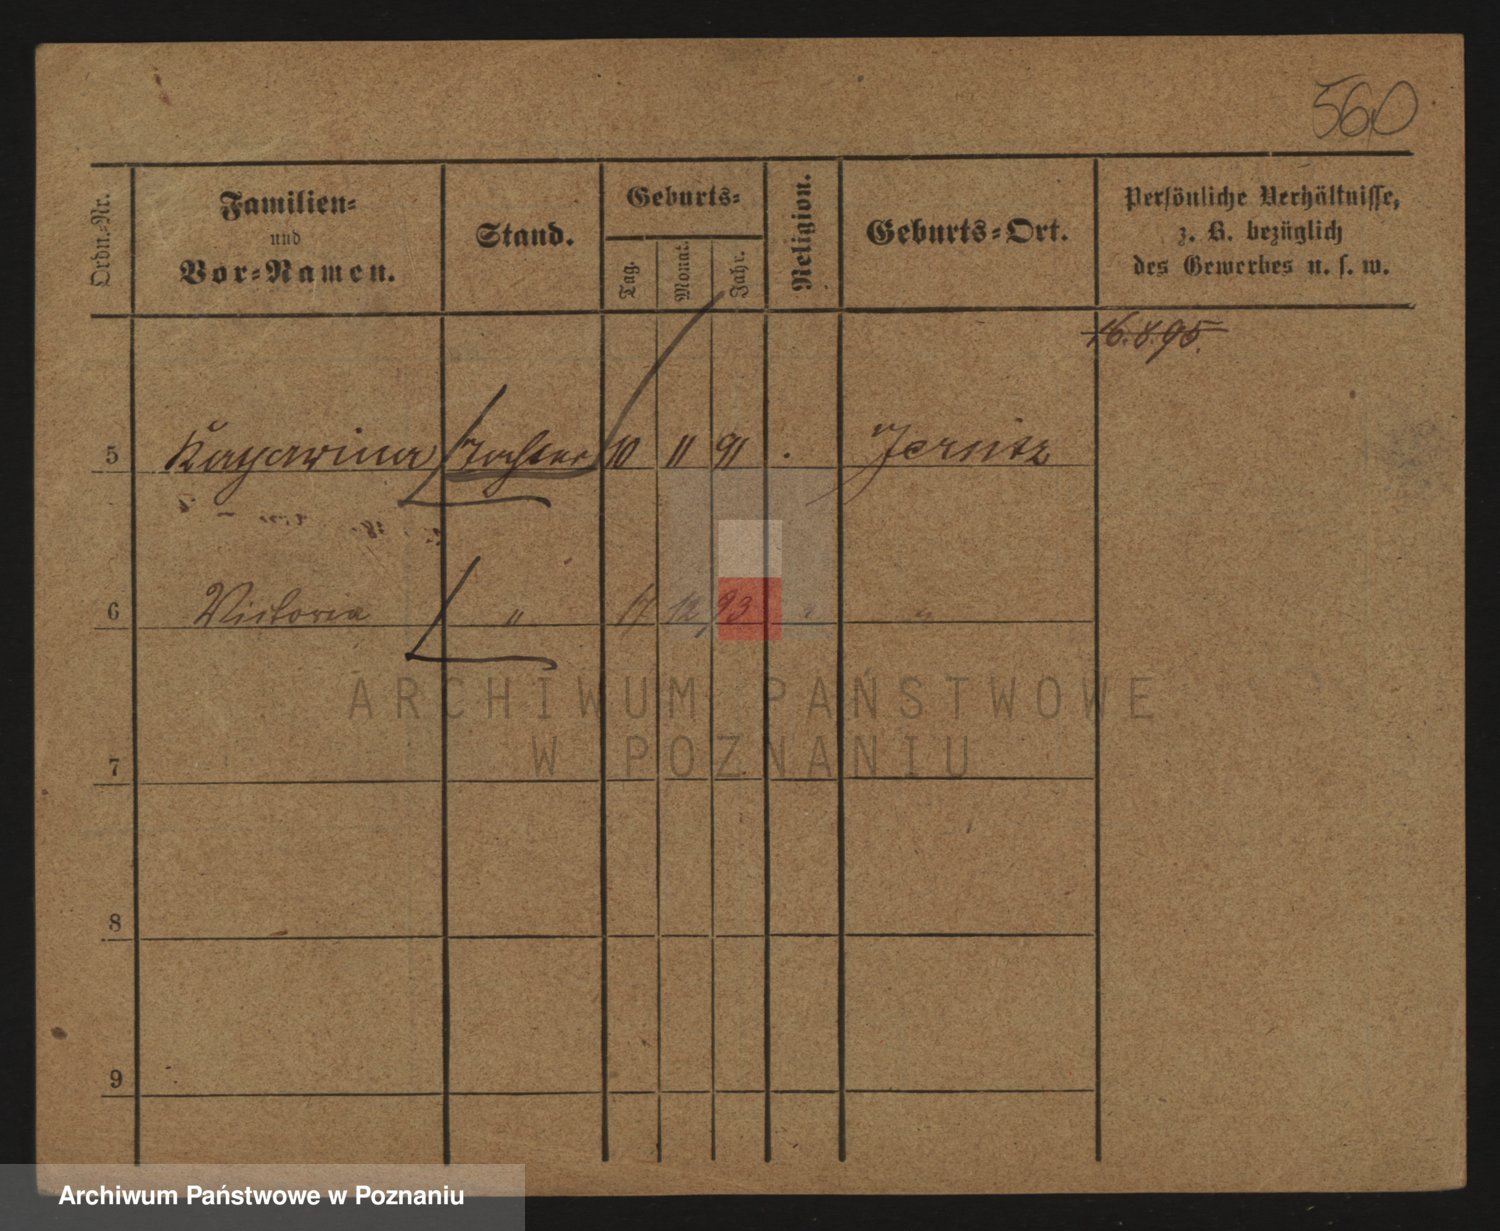 560
Ordn.-Nr.
Familien-
und
Vor-Namen.
Stand.
Geburts-
Tag.
Monat.
Jahr.
Religion.
Geburts-Ort.
Persönliche Verhältnisse,
z. B. bezüglich
des Gewerbes u. s. w.
16.8.95.
5 Katharina Tochter 10 11 91 Jersitz
6 Victoria " 17 12 93 " "
ARCHIWUM PAŃSTWOWE
W POZNANIU
7
8
9
Archiwum Państwowe w Poznaniu